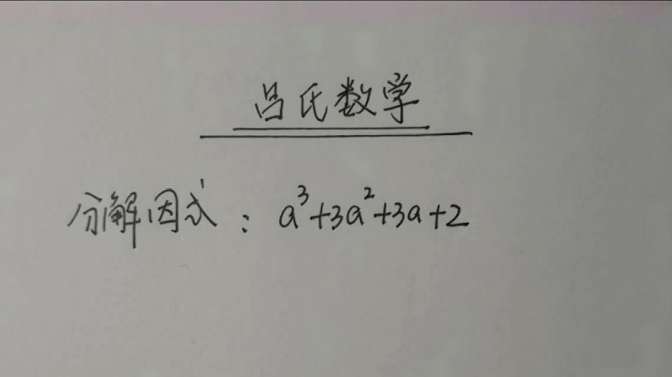 吕氏数学
分解因式：a³+3a²+3a+2